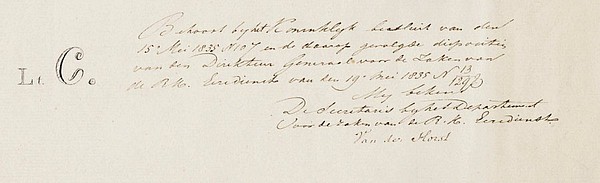 Lt. C.
Behoort by het Koninklyk besluit van den
15 Mei 1835 N 107 en de daarop gevolgde dispositie
van den Direkteur Generaal voor de Zaken van
de R. K. Eeredienst van den 19 Mei 1835 N 13
My bekend
De Secretaris by het Departement
voor de zaken van de R. K. Eeredienst
Van der Horst